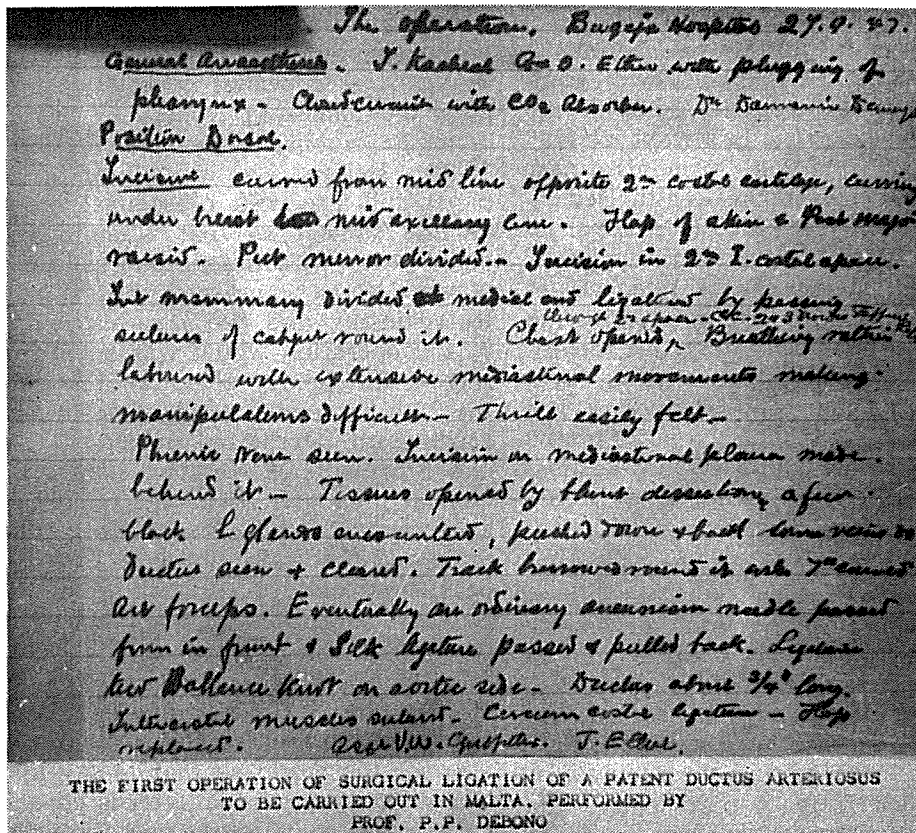 The operation. Bugeja Hospital 27.9.47.
General Anaesthesia - I. Tracheal G & O. Ether with plugging of
pharynx - Closed circuit with CO2 Absorber. Dr
Position Dorsal.
Incision curved from mid line opposite 2nd costal cartilage, curving
under breast to mid axillary line. Flap of skin & Pect major
raised. Pect minor divided. - Incision in 2nd I. costal space.
Int mammary divided at medial end ligatured by passing
through 2nd space
sutures of catgut round it. Chest opened, Breathing rather
laboured with extensive mediastinal movements making
manipulations difficult - Thrill easily felt -
Phrenic Nerve seen. Incision in mediastinal pleura made
behind it - Tissues opened by blunt dissection, a few
black L glands encountered, pushed down & back
Ductus seen & cleared. Track burrowed round it with 7" curved
Art forceps. Eventually an ordinary aneurism needle passed
from in front & Silk ligature passed & pulled back. Ligature
tied Ballance Knot on aortic side - Ductus about 3/4" long.
Intercostal muscles sutured - Circum costal ligature - Flap
replaced.
THE FIRST OPERATION OF SURGICAL LIGATION OF A PATENT DUCTUS ARTERIOSUS
TO BE CARRIED OUT IN MALTA, PERFORMED BY
PROF. P.P. DEBONO